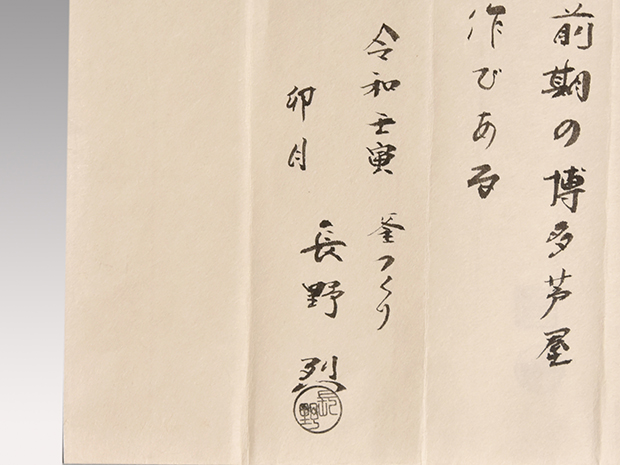 前期の博多芦屋
作である
令和壬寅 釜つくり
卯月 長野 烈
長野